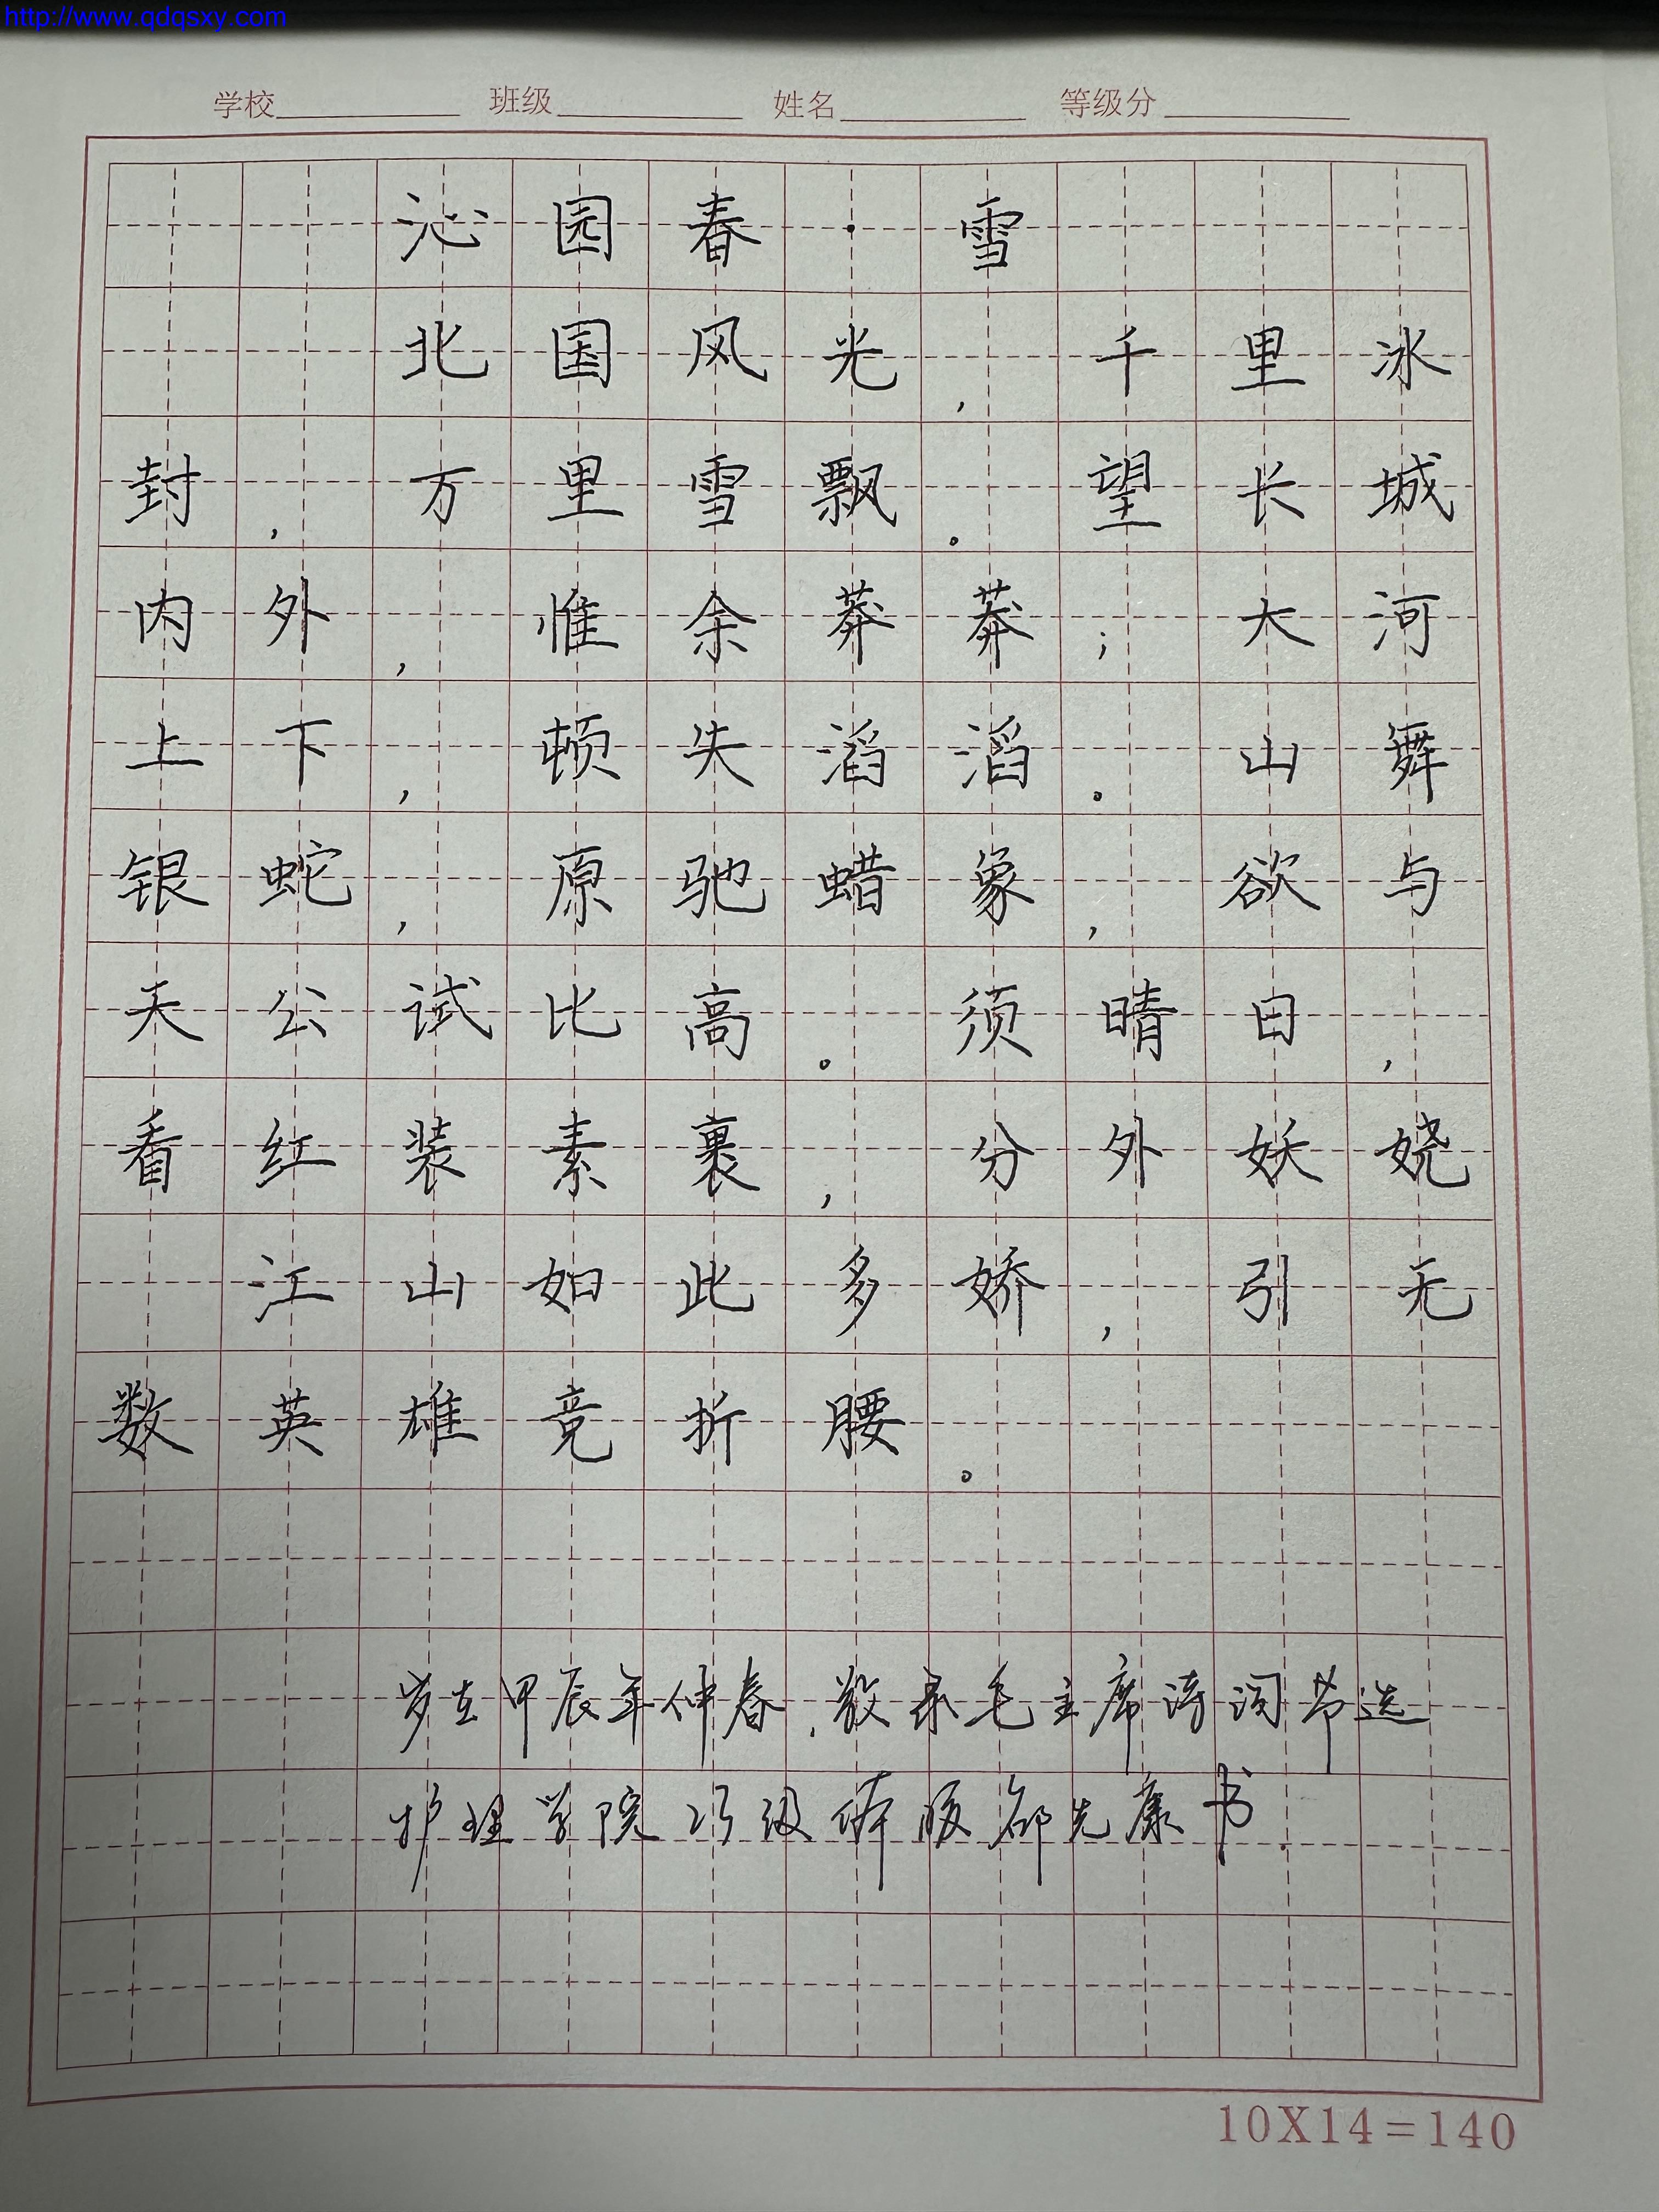 http://www.qdqsxy.com
学校 班级 姓名 等级分
沁园春·雪
北国风光，千里冰
封，万里雪飘。望长城
内外，惟余莽莽；大河
上下，顿失滔滔。山舞
银蛇，原驰蜡象，欲与
天公试比高。须晴日，
看红装素裹，分外妖娆
江山如此多娇，引无
数英雄竞折腰。
岁在甲辰年仲春，敬录毛主席诗词节选
护理学院 级 先康书.
10X14=140